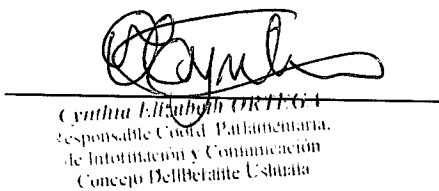 Cynthia Elizabeth ORTEGA
Responsable Coord. Parlamentaria,
de Información y Comunicación
Concejo Deliberante Ushuaia